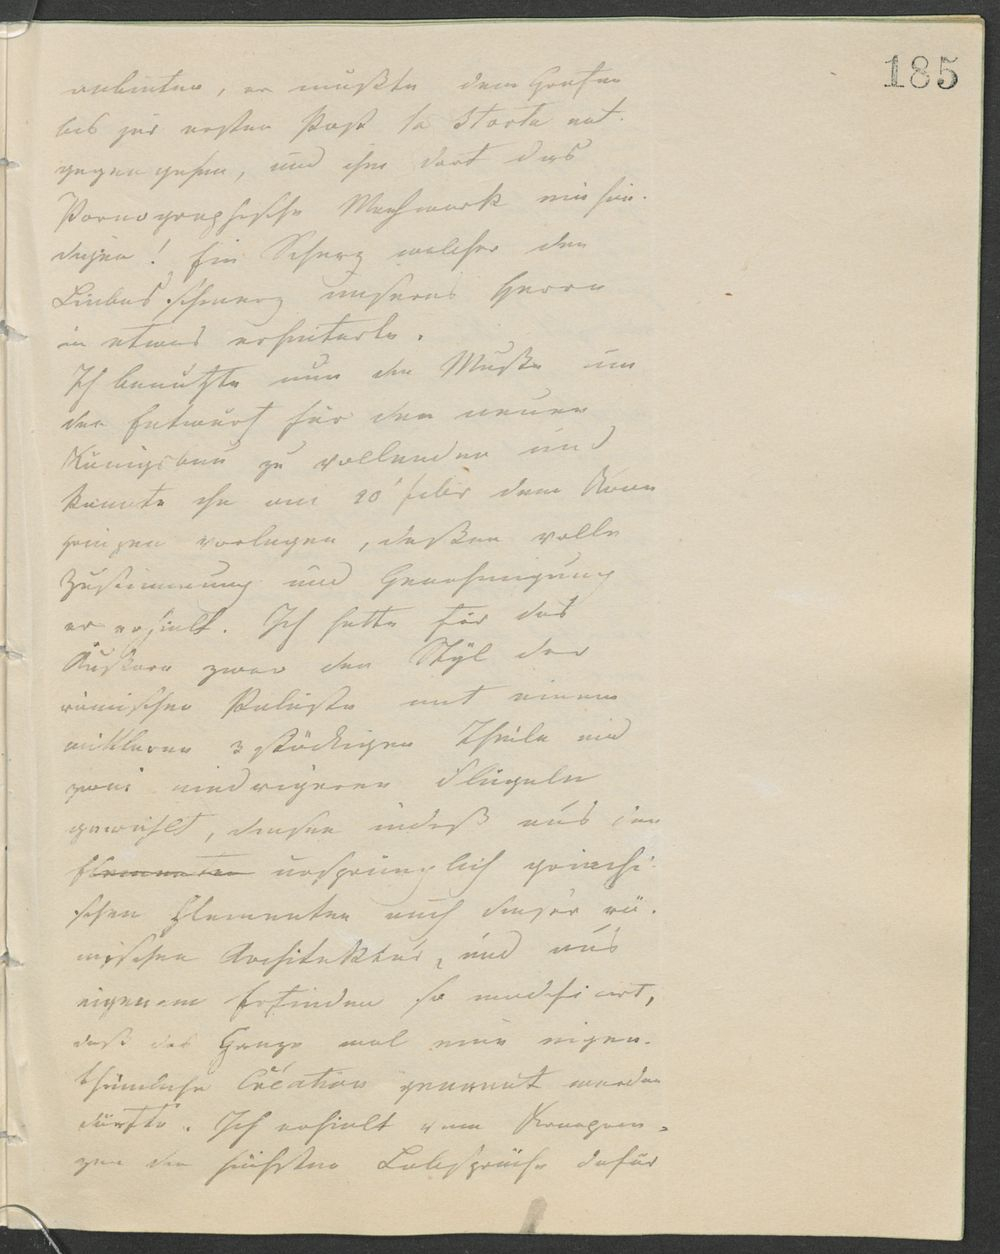 185
anbieten, er mußte dem Grafen
bis zur ersten Post la Storta ent-
gegengehen, und ihm dort das
Pornographische Machwerk einhän-
digen! Ein Scherz welcher den
Liebesschmerz unseres Herrn
in etwas erheiterte.
Ich benutzte nun die Muße um
den Entwurf für den neuen
Königsbau zu vollenden und
konnte ihn am 20' febr dem Kron
prinzen vorlegen, dessen volle
Zustimmung und Genehmigung
er erhielt. Ich hatte für das
Äußere zwar den Styl der
römischen Paläste mit einem
mittleren 3 stöckigen Theile und
zwei niedrigeren Flügeln
gewählt, diesen indeß aus den
Elementen ursprünglich griechi-
schen Elementen auch dieser rö-
mischen Architektur, und aus
eigenem Erfinden so modificirt,
daß das Ganze wol eine eigen-
thümliche Création genannt werden
dürfte. Ich erhielt vom Kronprin-
zen die höchsten Lobsprüche dafür